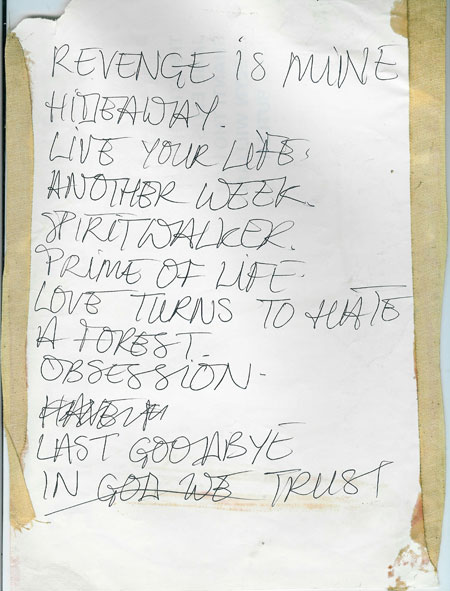 REVENGE IS MINE
HIDEAWAY.
LIVE YOUR LIFE.
ANOTHER WEEK.
SPIRITWALKER.
PRIME OF LIFE.
LOVE TURNS TO HATE
A FOREST.
OBSESSION.
LAST GOODBYE
IN GOD WE TRUST